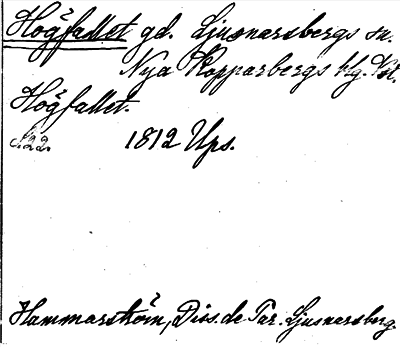 Högfallet gd. Ljusnarsbergs sn.
Nya Kopparbergs hlg. Vstl.
Högfallet.
s. 22. 1812 Ups.
Hammarström, Diss. de Par. Ljusnarsberg.